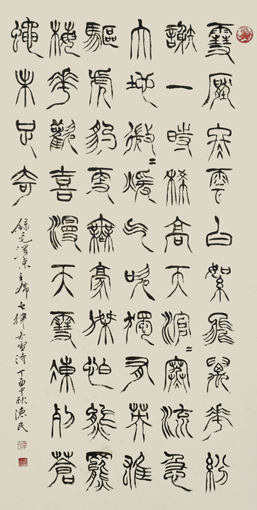 雪壓冬雲白絮飛萬花紛
謝一時稀高天滾〻寒流急
大地微〻暖氣吹獨有英雄
驅虎豹更無豪傑怕熊羆
梅花歡喜漫天雪凍死蒼
蠅未足奇
錄毛澤東主席七律冬雲詩丁酉中秋德民